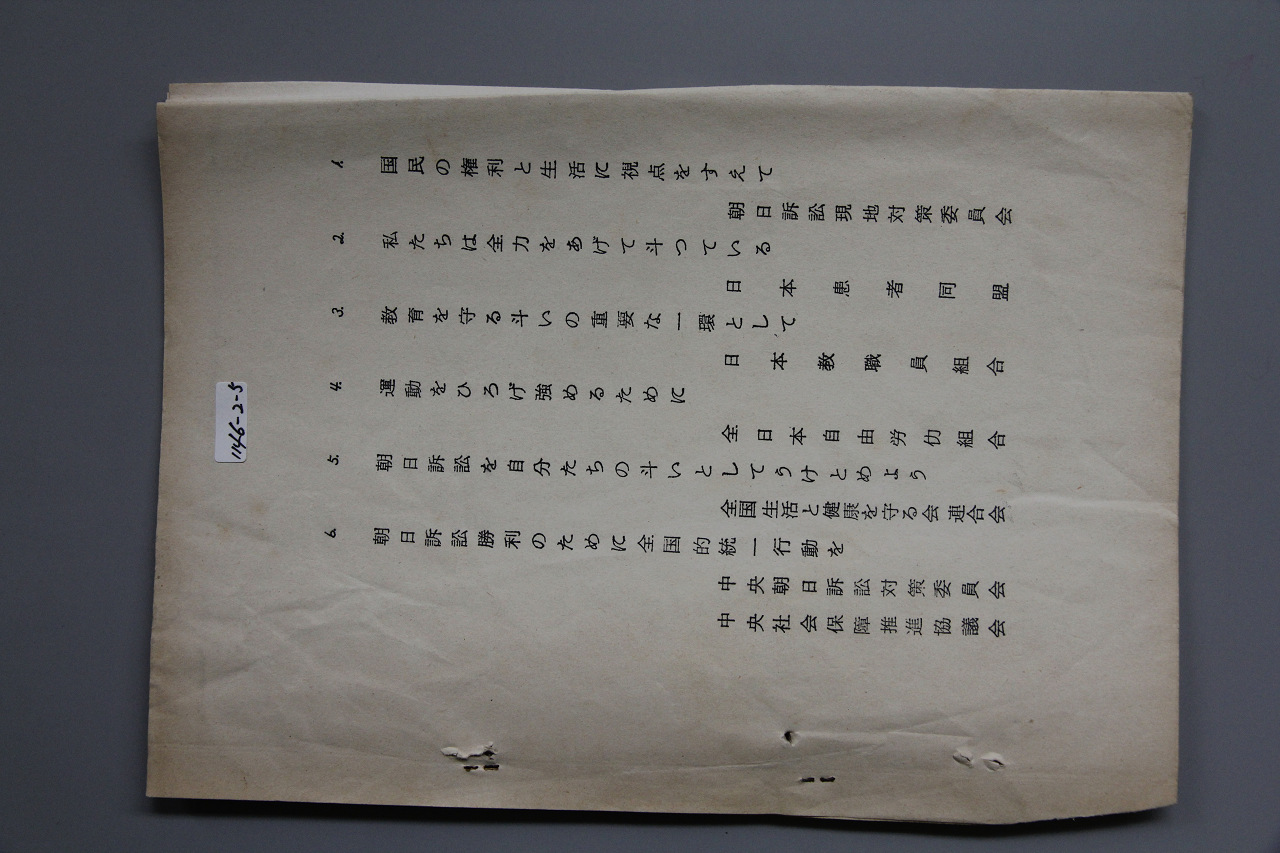 1. 国民の権利と生活に視点をすえて
朝日訴訟現地対策委員会
2. 私たちは全力をあげて斗つている
日本患者同盟
3. 教育を守る斗いの重要な一環として
日本教職員組合
4. 運動をひろげ強めるために
全日本自由労仂組合
5. 朝日訴訟を自分たちの斗いとしてうけとめよう
全国生活と健康を守る会連合会
6. 朝日訴訟勝利のために全国的統一行動を
中央朝日訴訟対策委員会
中央社会保障推進協議会
1146-2-5